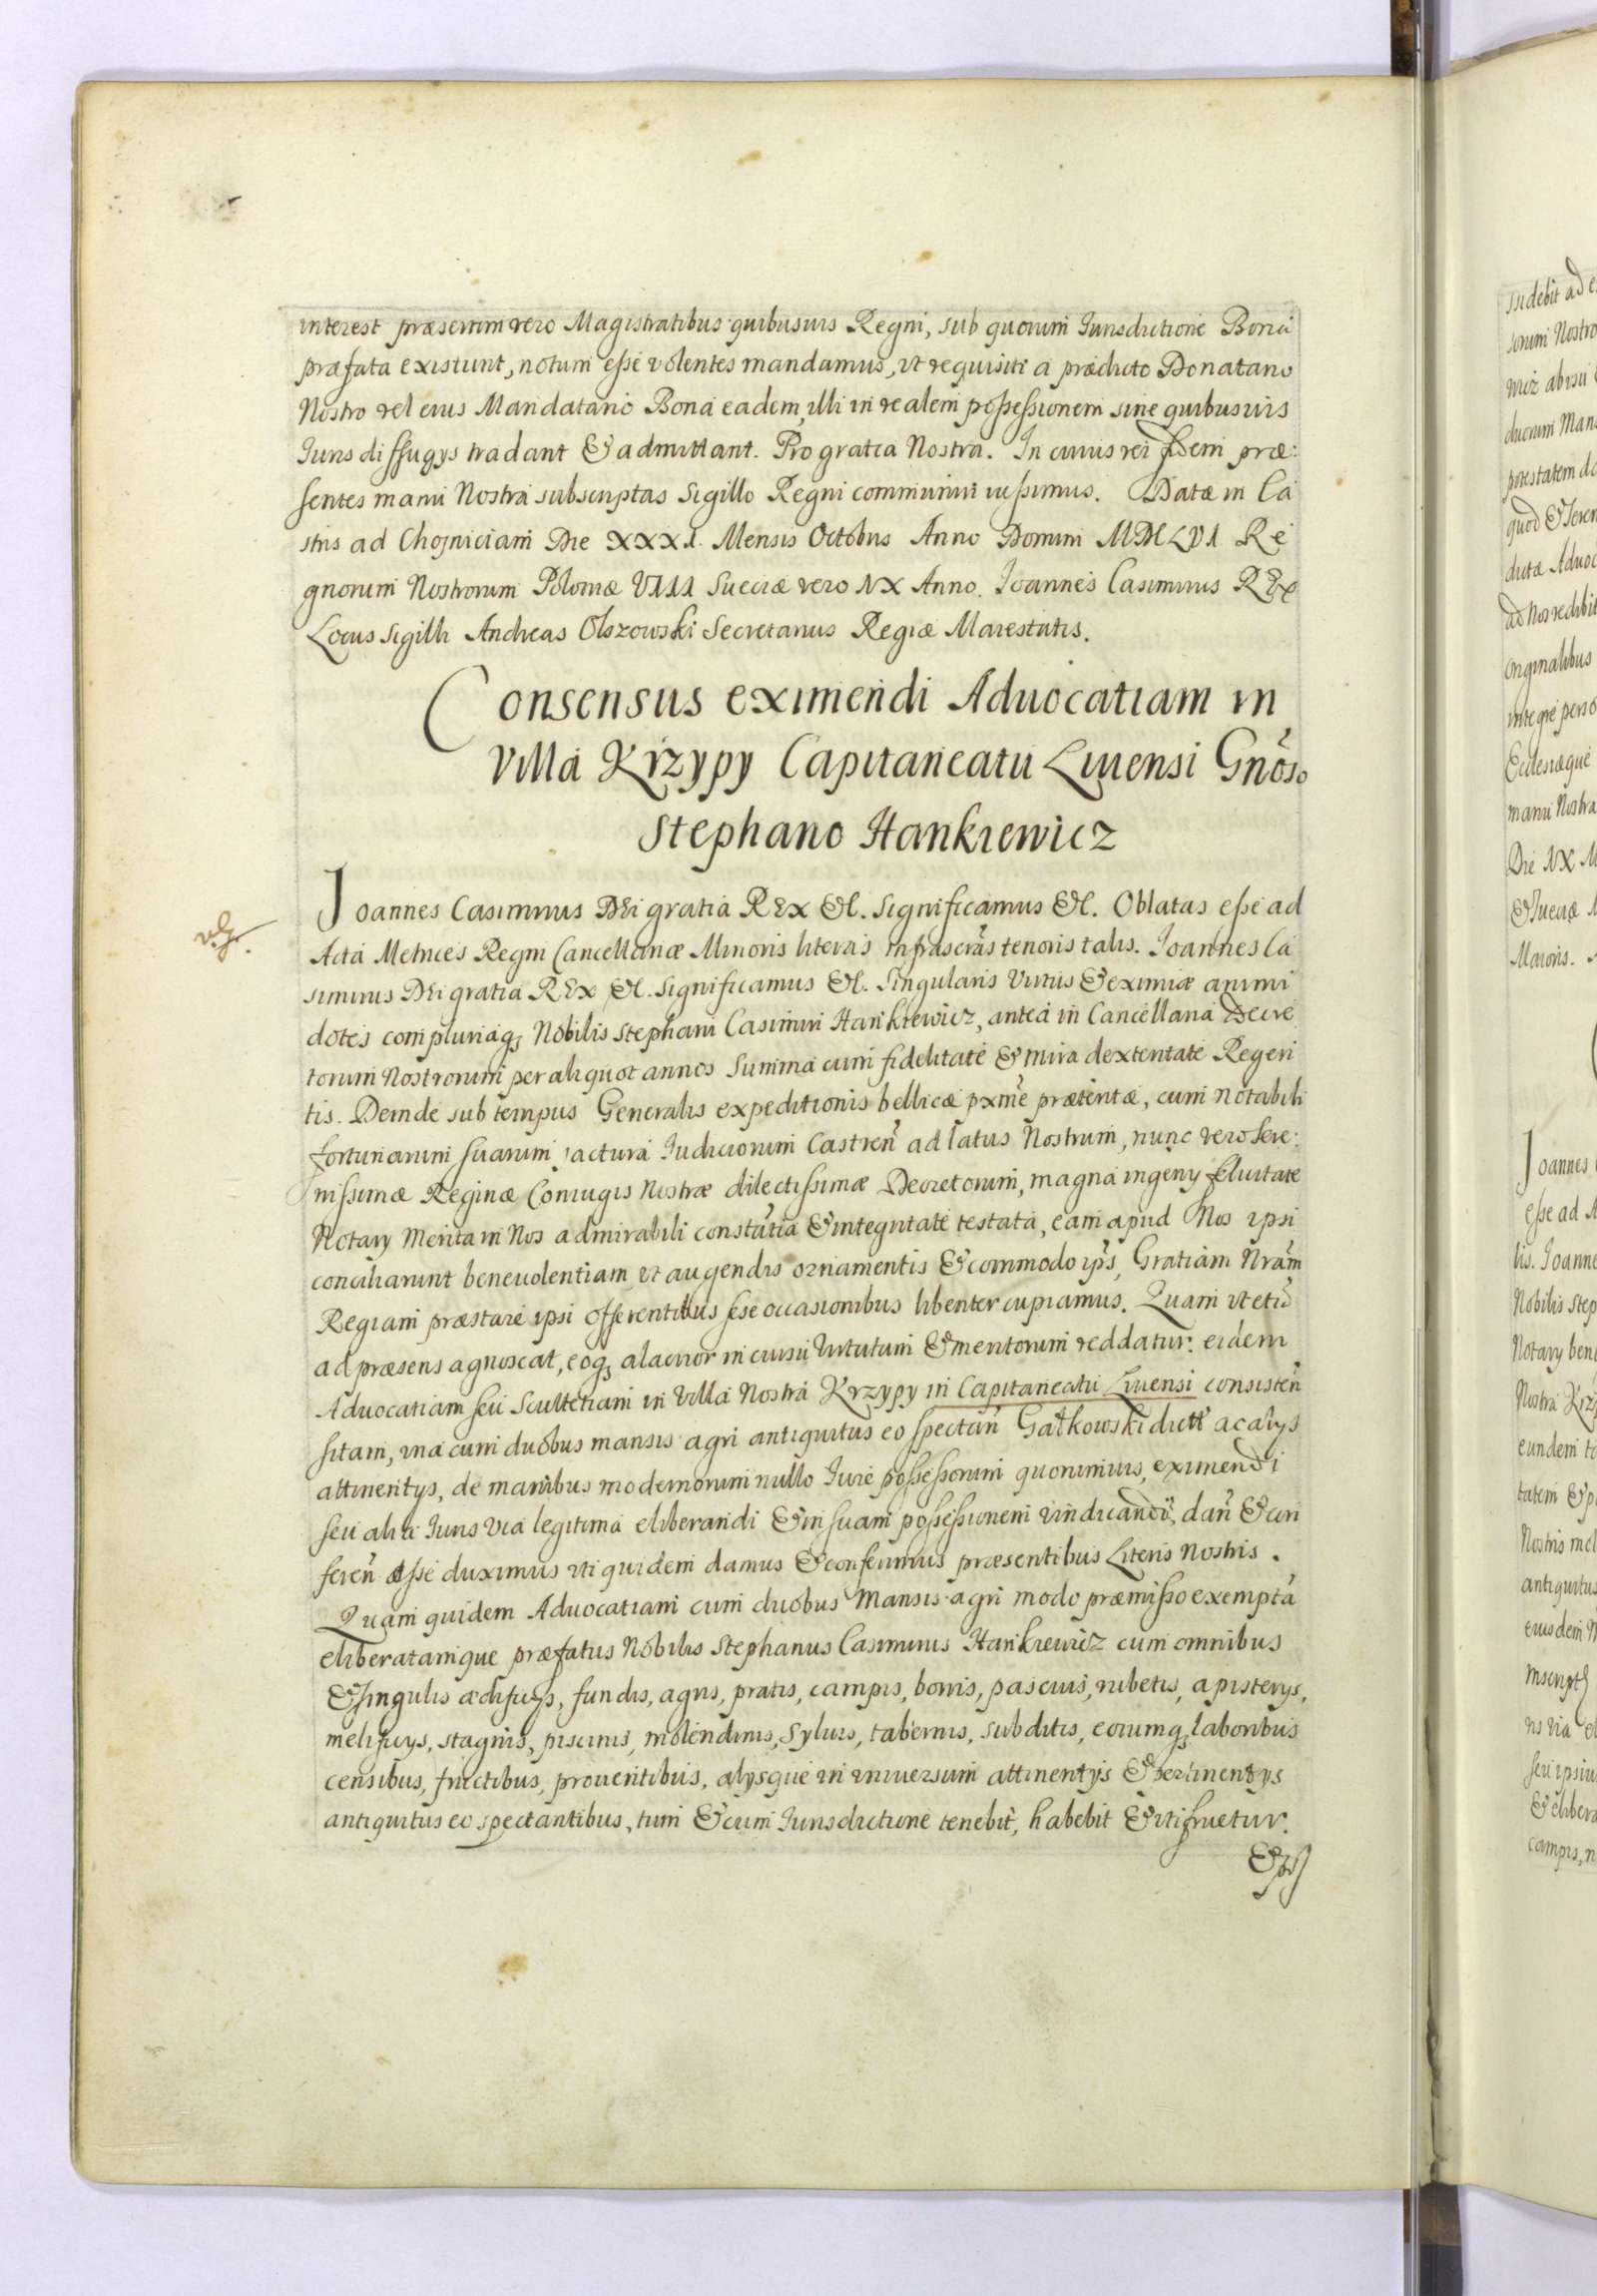 interest præsertim vero Magistratibus quibusuis Regni, sub quorum Jurisdictione Bona
præfata existunt, notum esse volentes mandamus, vt requisiti a prædicto Donatario
Nostro vel eius Mandatario Bona eadem, illi in realem possessionem sine quibusuis
Juris diffugys tradant & admittant. Pro gratia Nostra. In cuius rei fidem præ:
sentes manu Nostra subscriptas Sigillo Regni communiri iussimus. Datæ in Ca
stris ad Choyniciam Die XXXI. Mensis Octobris Anno Domini MDCLVI Re
gnorum Nostrorum Poloniæ VIII Sueciæ vero IX Anno. Joannes Casimirus REX
Locus Sigilli Andreas Olszowski Secretarius Regiæ Maiestatis.
Consensus eximendi Aduocatiam in
Villa Krzypy Capitaneatu Liuensi Gnõso
Stephano Hankiewicz
v. g.
Joannes Casimirus DEi gratia REX &c. Significamus &c. Oblatas esse ad
Acta Metrices Regni Cancellariæ Minoris literas infrascrãs tenoris talis. Joannes Ca
simirus DEi gratia REX &c. Significamus &c. Singularis Virtus & eximiæ animi
dotes compluriaq; Nobilis Stephani Casimiri Hankiewicz, antea in Cancellaria Decre
torum Nostrorum per aliquot annos Summa cum fidelitate & mira dexteritate Regen
tis. Deinde sub tempus Generalis expeditionis bellicæ pxme præteritæ, cum notabili
fortunarum suarum iactura Judiciorum Castren ad latus Nostrum, nunc vero Sere:
nissimæ Reginæ Coniugis Nostræ dilectissimæ Decretorum, magna ingeny
Notary Merita in Nos admirabili constãtia & integritate testata, eam apud Nos ipsi
conciliarunt beneuolentiam vt augendis ornamentis & commodo ips, Gratiam Nrãm
Regiam præstare ipsi offerentibus sese occasionibus libenter cupiamus. Quam vt etiã
ad præsens agnoscat, eoq; alacrior in cursu Virtutum & meritorum reddatur: eidem
Aduocatiam seu Scultetiam in Villa Nostra Krzypy in Capitaneatu Liuensi consisten
sitam, vna cum duobus mansis agri antiquitus eo spectan Gałkowski dict ac alys
attinentys, de manibus modernorum nullo Jure possessorum quorumuis, eximendi
seu alia Juris via legitima eliberandi & in suam possessionem vindicandi, dañ & con
feren esse duximus vti quidem damus & conferimus præsentibus Literis Nostris.
Quam quidem Aduocatiam cum duobus Mansis agri modo præmisso exemptã
eliberatamque præfatus Nobilis Stephanus Casimirus Hankiewicz cum omnibus
& singulis ædificys, fundis, agris, pratis, campis, borris, pascuis, rubetis, apisterys,
melificys, stagnis, piscinis, molendinis, syluis, tabernis, subditis, eorumq; laboribus
censibus, fructibus, prouentibus, alysque in vniuersum attinentys & pertinentys
antiquitus eo spectantibus, tum & cum Jurisdictione tenebit, habebit & vtifruetur.